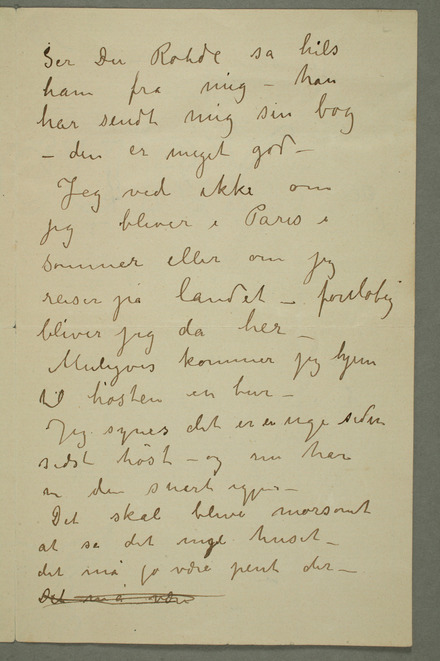 Ser Du Rohde sa hils
ham fra mig – han
har sendt mig sin bog
– den er meget god –
Jeg ved ikke om
jeg bliver i Paris i
sommer eller om jeg
reiser på landet – foreløbig
bliver jeg da her –
Muligvis kommer jeg hjem
til høsten en tur –
Jeg synes det er en uge siden
sidst høst – og nu har
vi den snart igjen –
Det skal blive morsomt
at se det nye huset –
det må jo være pent der –
Det må være